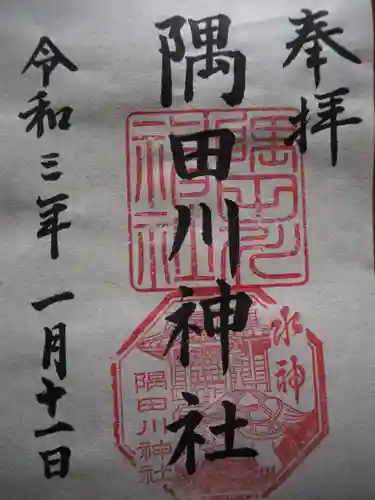 奉拝
隅田川神社
令和三年 一月十一日
隅田川
神社
水神
隅田川神社